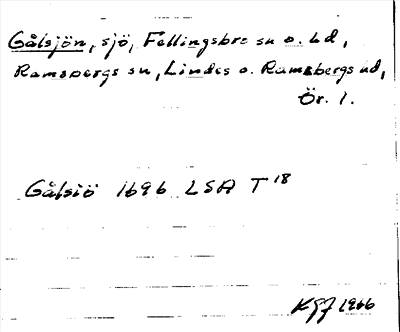 Gålsjön, sjö, Fellingsbro sn o. hd,
Ramsbergs sn, Lindes o. Ramsbergs hd,
Ör. l.
Gålsiö 1696 LSA T 18
KGJ 1966